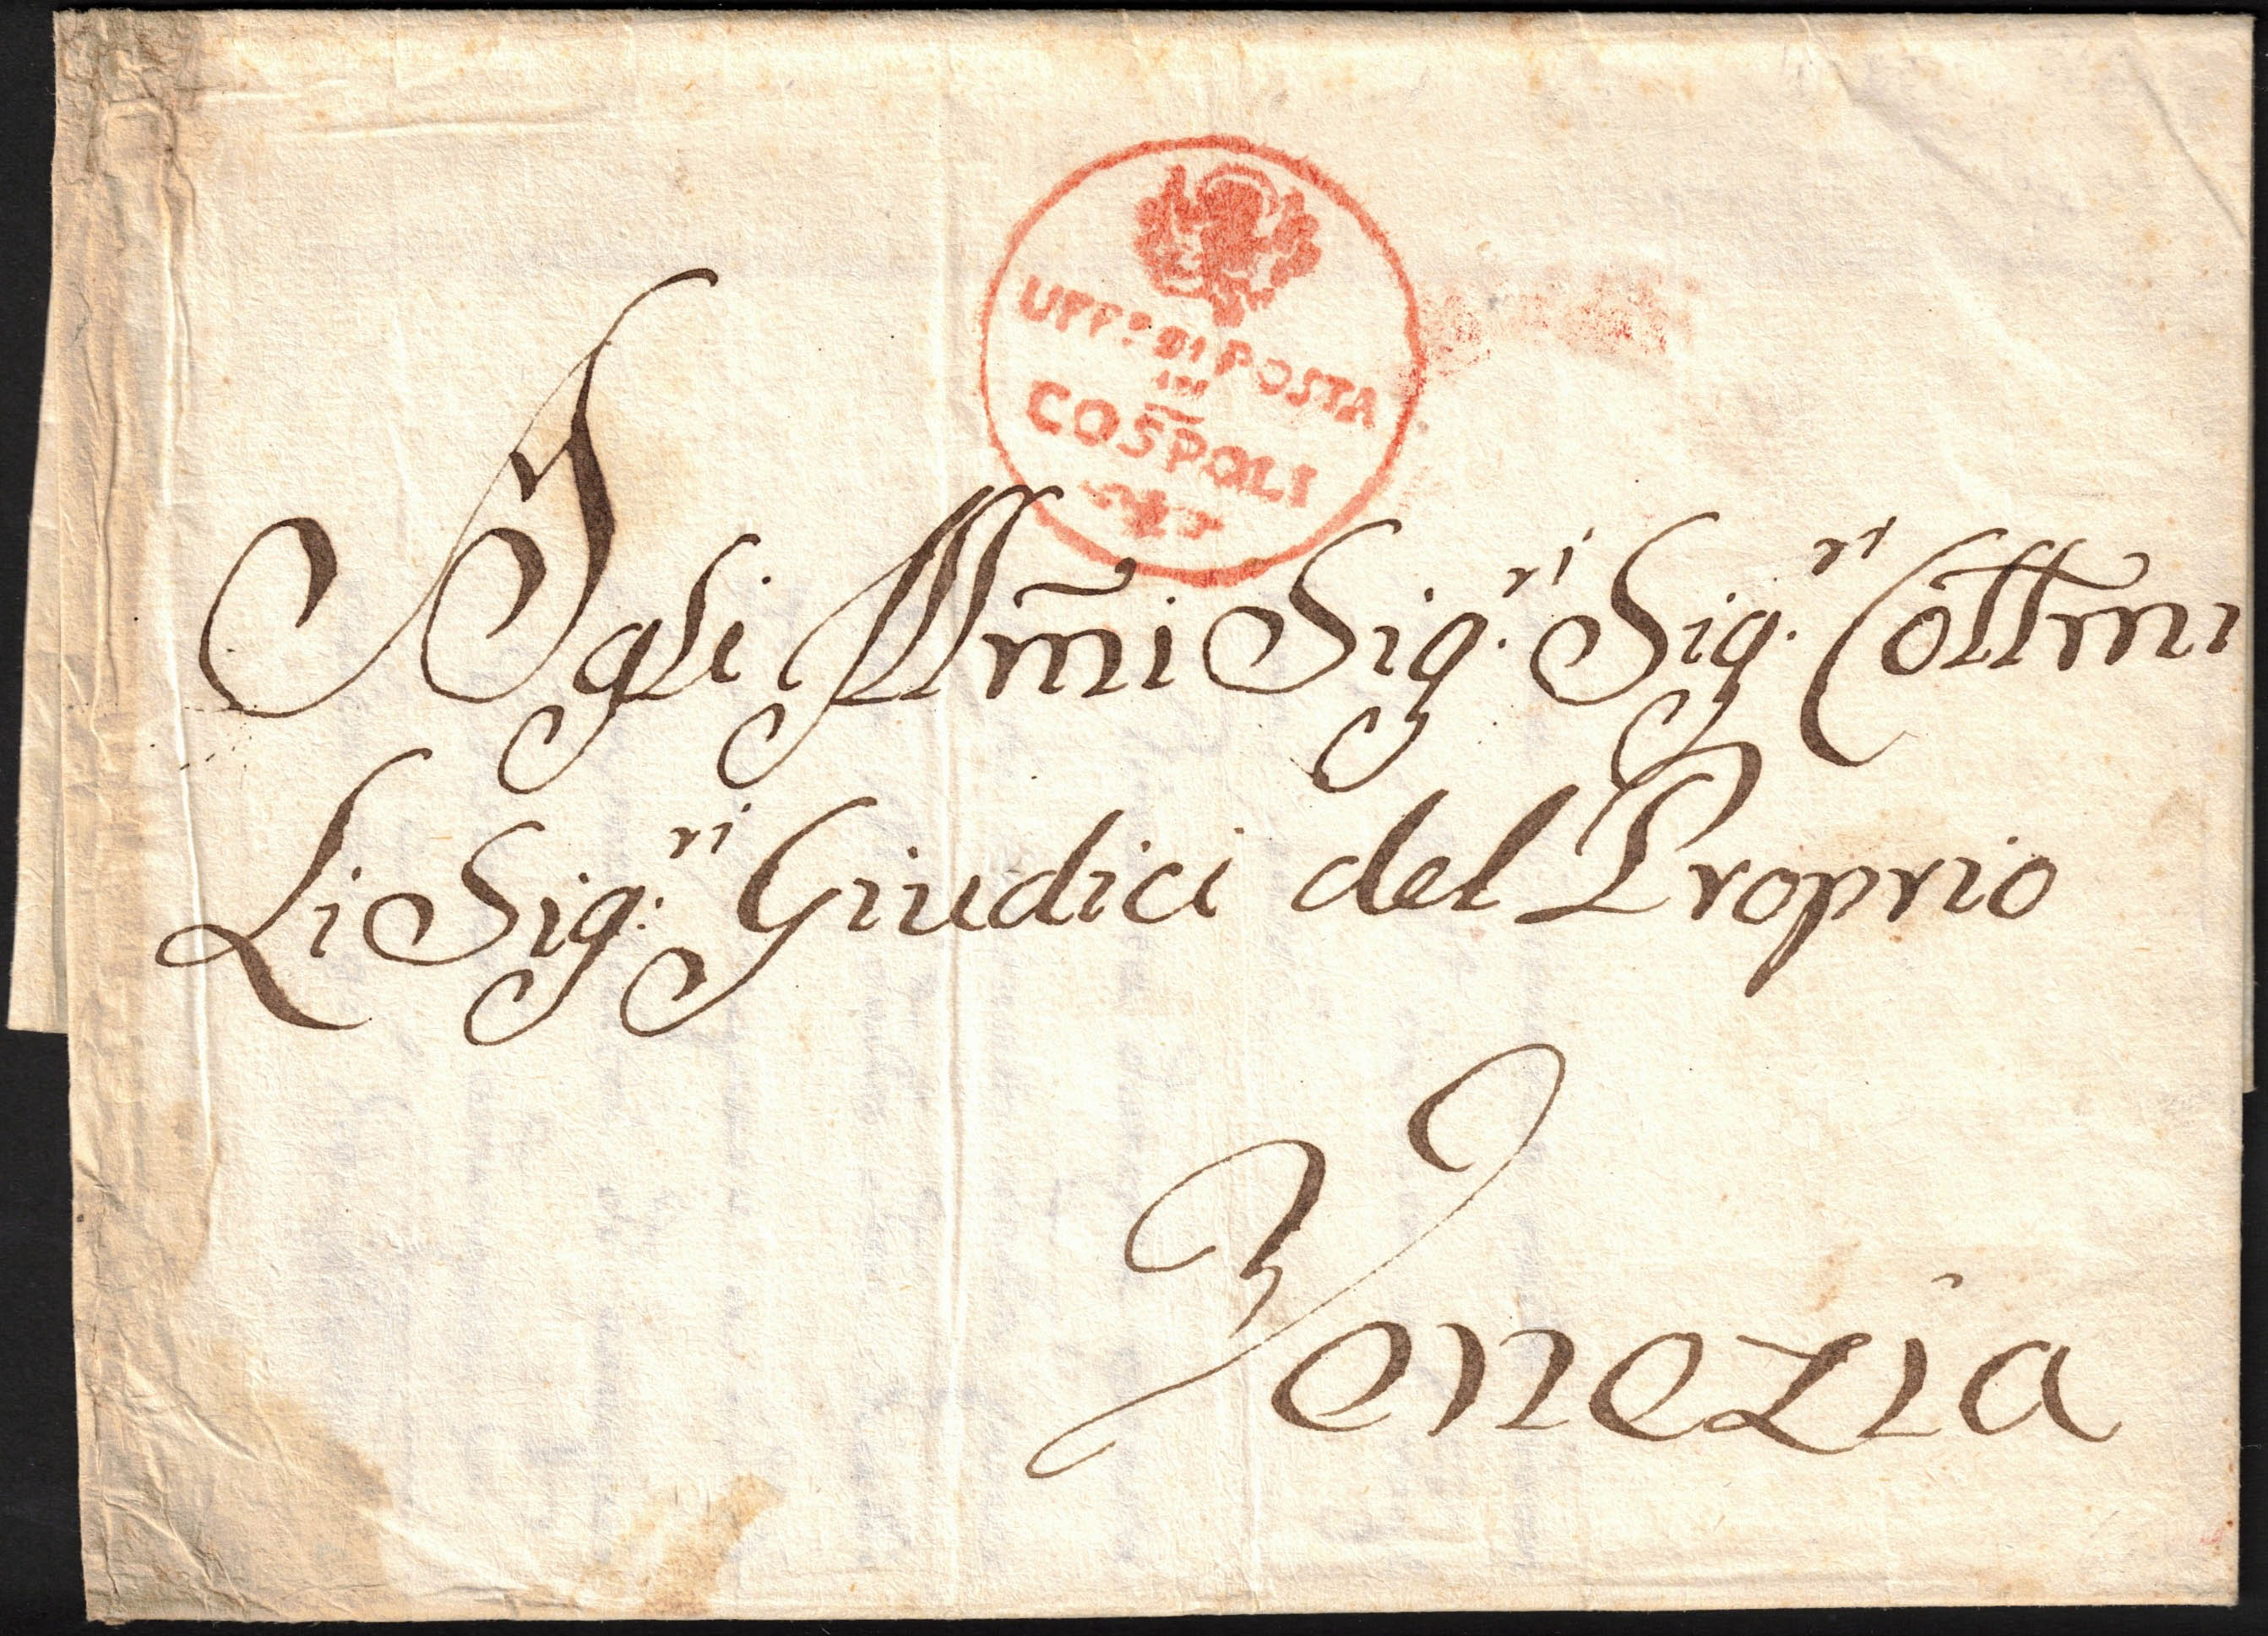 UFF.º DI POSTA
IN
COSPOLI
Agli Illm̃i Sig.ri Sig.ri Col̃l̃mi
Li Sig.ri Giudici del Proprio
Venezia